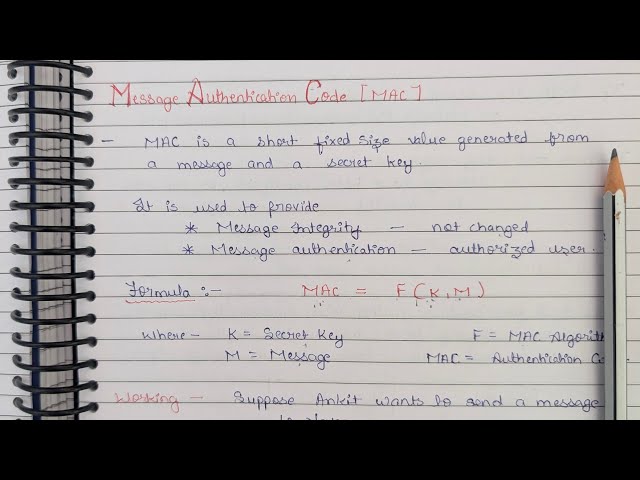 Message Authentication Code [MAC]
- MAC is a short fixed size value generated from
a message and a secret key.
It is used to provide
* Message Integrity - not changed
* Message authentication - authorized user.
Formula :- MAC = F(K, M)
Where - K = Secret Key F = MAC Algorith
M = Message MAC = Authentication C
Working - Suppose Ankit wants to send a message